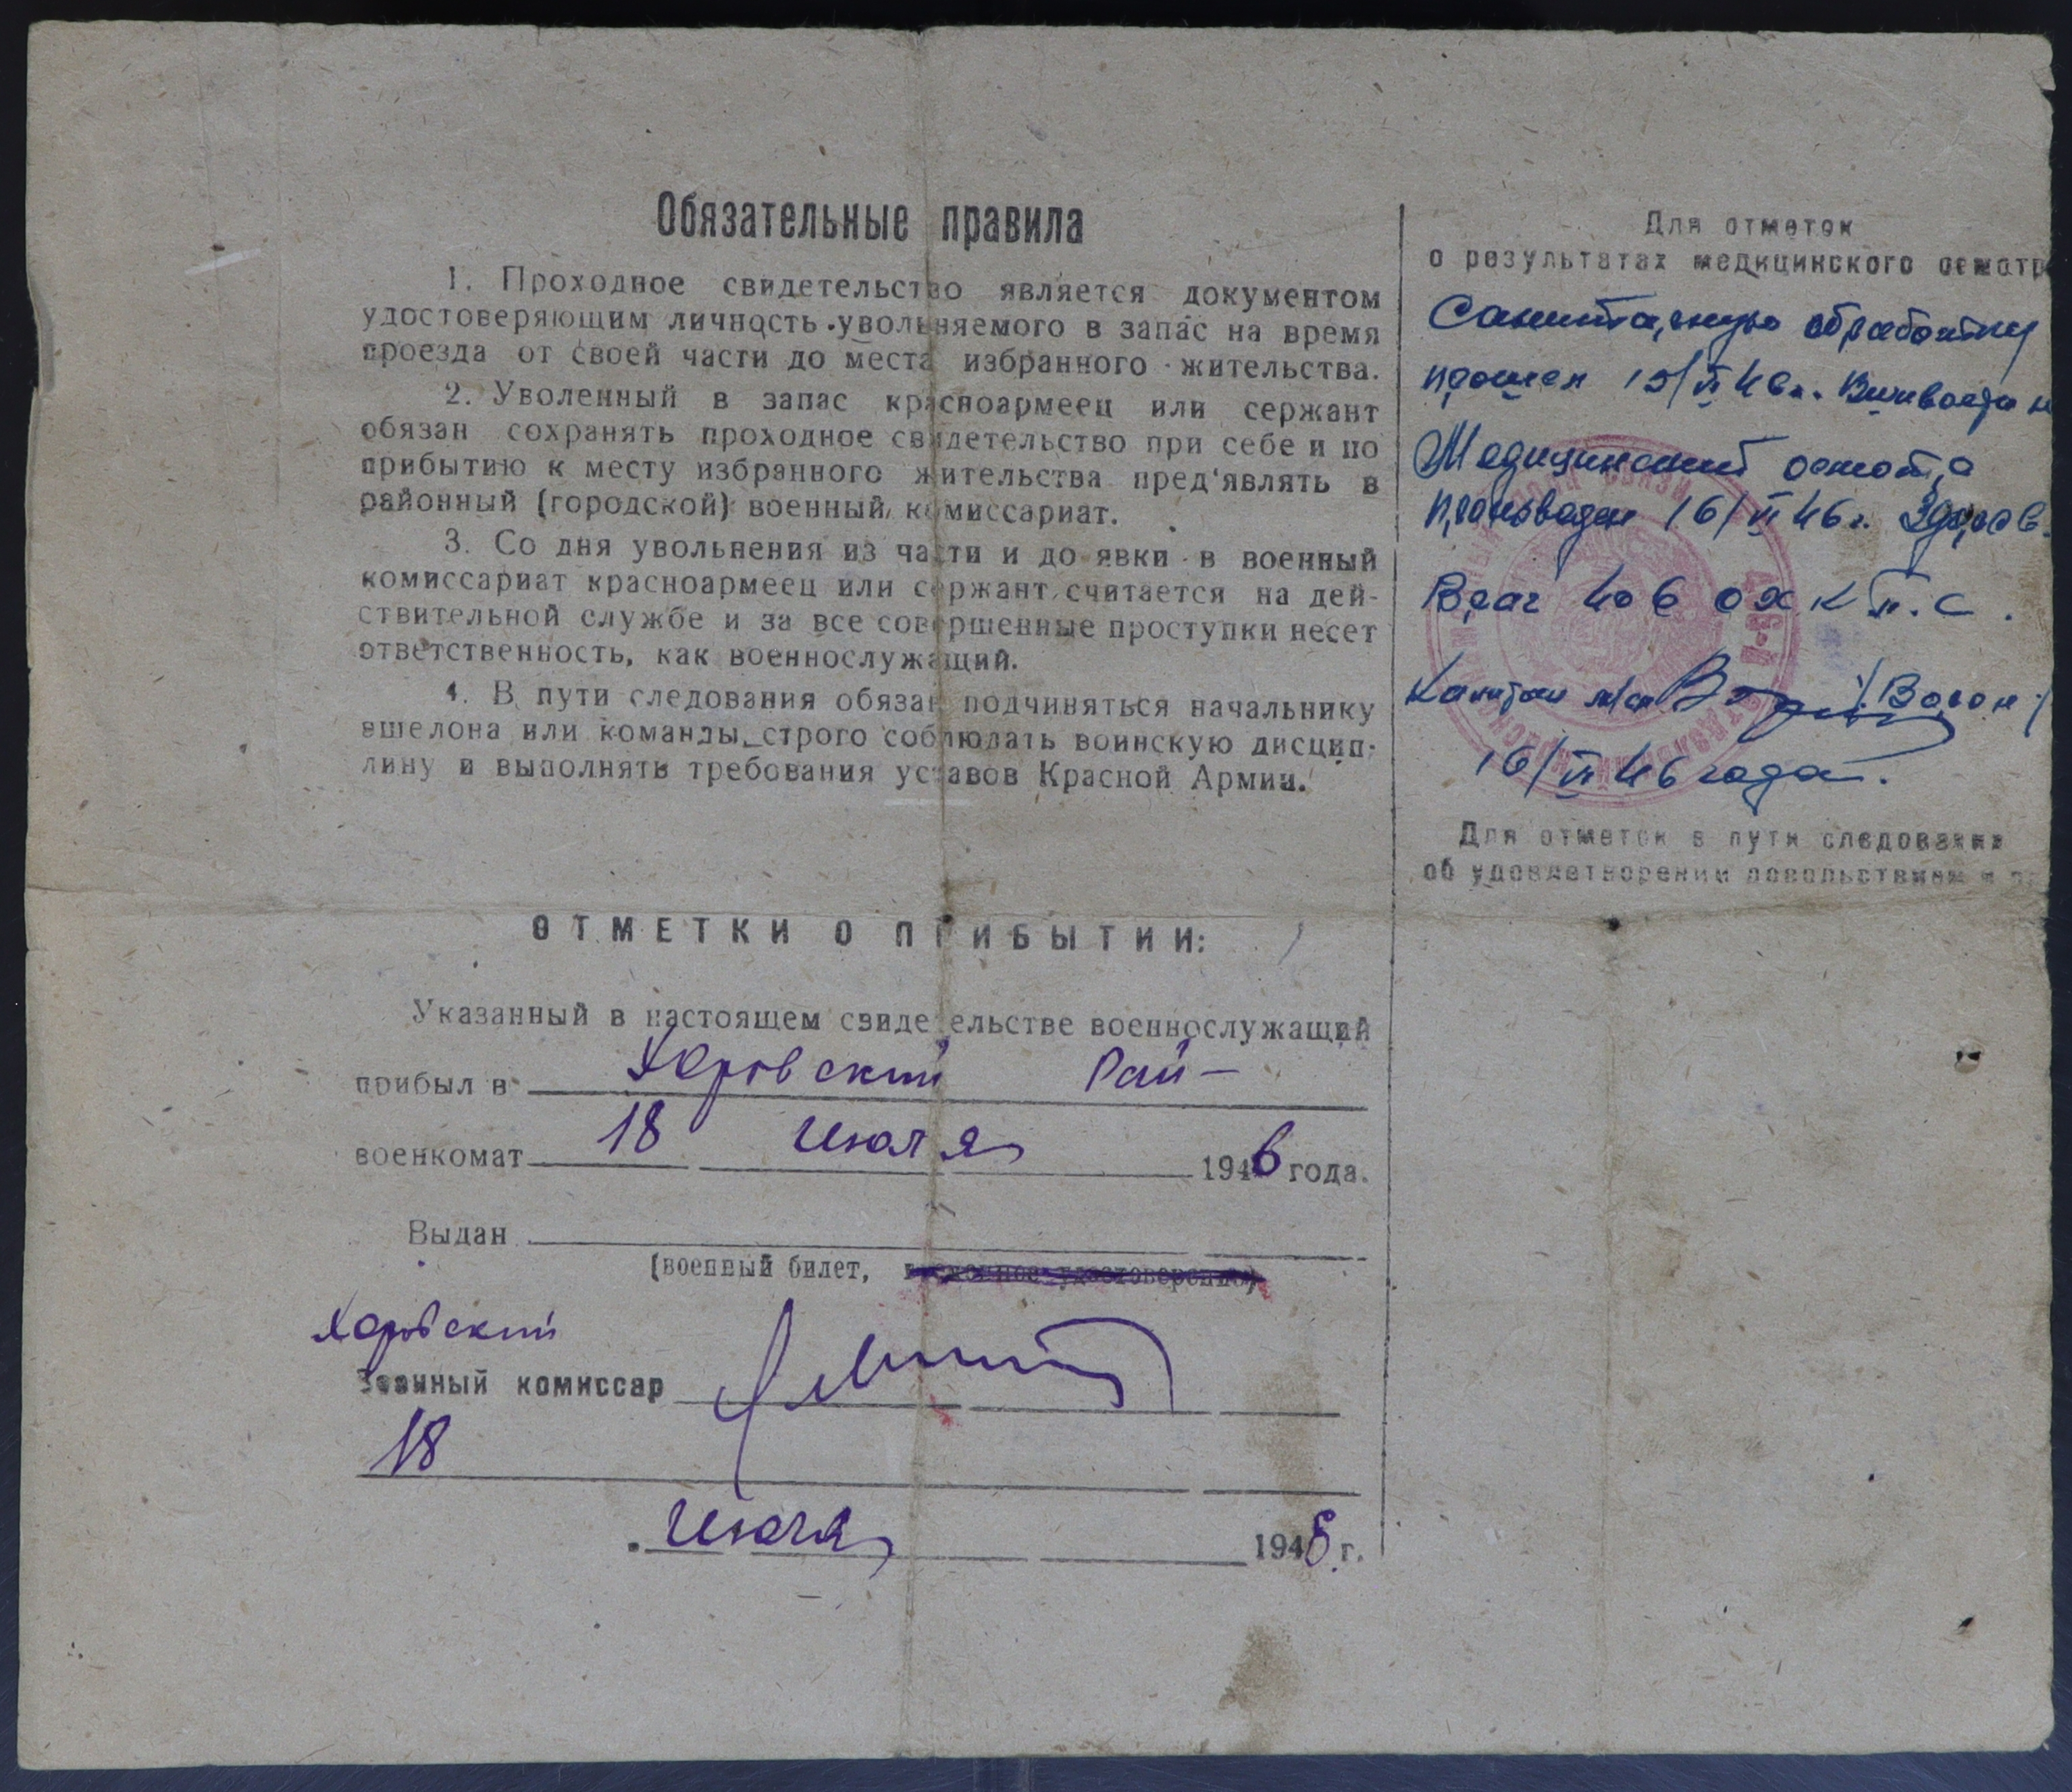 Обязательные правила
1. Проходное свидетельство является документом
удостоверяющим личность увольняемого в запас на время
проезда от своей части до места избранного жительства.
2. Уволенный в запас красноармеец или сержант
обязан сохранять проходное свидетельство при себе и по
прибытию к месту избранного жительства пред'являть в
районный (городской) военный комиссариат.
3. Со дня увольнения из части и до явки в военный
комиссариат красноармеец или сержант считается на дей-
ствительной службе и за все совершенные проступки несет
ответственность, как военнослужащий.
4. В пути следования обязан подчиняться начальнику
эшелона или команды строго соблюдать воинскую дисцип-
лину и выполнять требования уставов Красной Армии.
ОТМЕТКИ О ПРИБЫТИИ:
Указанный в настоящем свидетельстве военнослужащий
прибыл в Хоровский Рай-
военкомат 18 Июля 1946 года.
Выдан
(военный билет,
Хоровский
Военный комиссар
18
Июля 1946 г.
Для отметок
о результатах медицинского осмотра
Санитарную обработку
прошел 15/VI 46г.
Медицинский осмотр
произведен 16/VI 46г. Здоров.
Врач 406 с.
Капитан м/сл
16/VI 46 года.
Для отметок в пути следования
об удовлетворении довольствием и